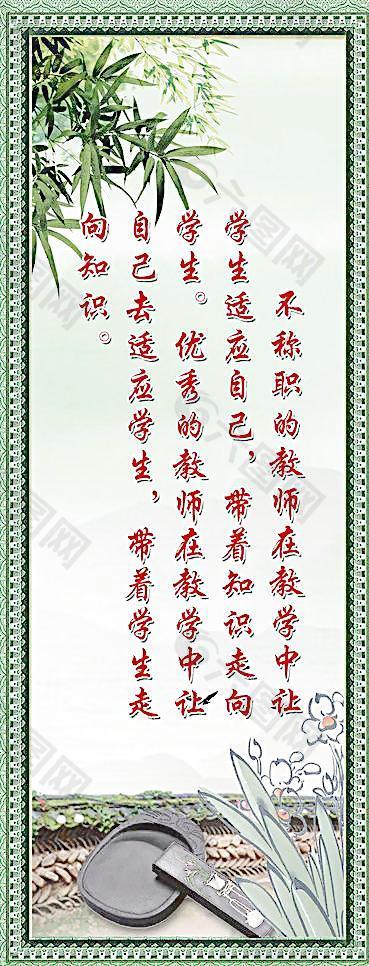 不称职的教师在教学中让
学生适应自己，带着知识走向
学生。优秀的教师在教学中让
自己去适应学生，带着学生走
向知识。
六图网